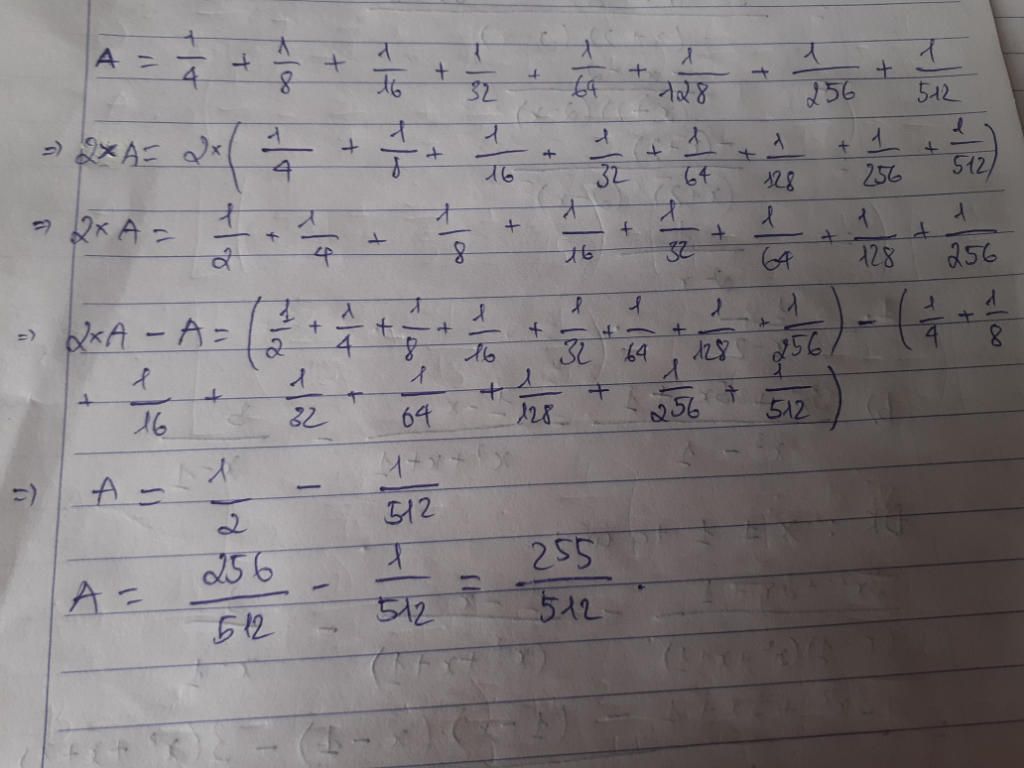 A = 1/4 + 1/8 + 1/16 + 1/32 + 1/64 + 1/128 + 1/256 + 1/512
=> 2×A = 2×(1/4 + 1/8 + 1/16 + 1/32 + 1/64 + 1/128 + 1/256 + 1/512)
=> 2×A = 1/2 + 1/4 + 1/8 + 1/16 + 1/32 + 1/64 + 1/128 + 1/256
=> 2×A - A = (1/2 + 1/4 + 1/8 + 1/16 + 1/32 + 1/64 + 1/128 + 1/256) - (1/4 + 1/8
+ 1/16 + 1/32 + 1/64 + 1/128 + 1/256 + 1/512)
=> A = 1/2 - 1/512
A = 256/512 - 1/512 = 255/512.